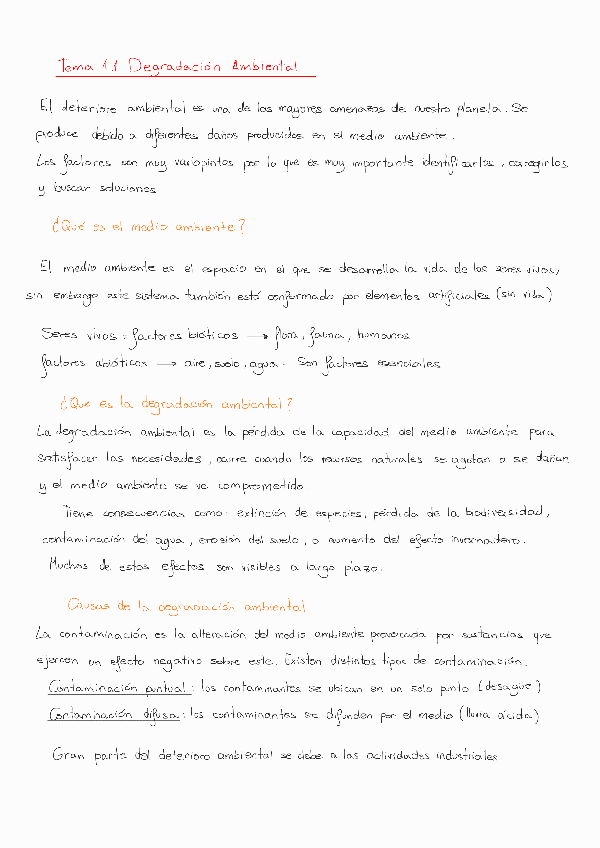 Tema 11 Degradación Ambiental
El deterioro ambiental es una de las mayores amenazas de nuestro planeta. Se
produce debido a diferentes daños producidos en el medio ambiente.
Los factores son muy variopintos por lo que es muy importante identificarlos, corregirlos
y buscar soluciones
¿Qué es el medio ambiente?
El medio ambiente es el espacio en el que se desarrolla la vida de los seres vivos,
sin embargo este sistema también está conformado por elementos artificiales (sin vida)
Seres vivos = factores bióticos → flora, fauna, humanos
factores abióticos → aire, suelo, agua. Son factores esenciales
¿Qué es la degradación ambiental?
La degradación ambiental es la pérdida de la capacidad del medio ambiente para
satisfacer las necesidades, ocurre cuando los recursos naturales se agotan o se dañan
y el medio ambiente se ve comprometido
Tiene consecuencias como: extinción de especies, pérdida de la biodiversidad,
contaminación del agua, erosión del suelo, o aumento del efecto invernadero.
Muchos de estos efectos son visibles a largo plazo.
Causas de la degradación ambiental
La contaminación es la alteración del medio ambiente provocada por sustancias que
ejercen un efecto negativo sobre este. Existen distintos tipos de contaminación.
Contaminación puntual: los contaminantes se ubican en un solo punto (desagüe)
Contaminación difusa: los contaminantes se difunden por el medio (lluvia ácida)
Gran parte del deterioro ambiental se debe a las actividades industriales